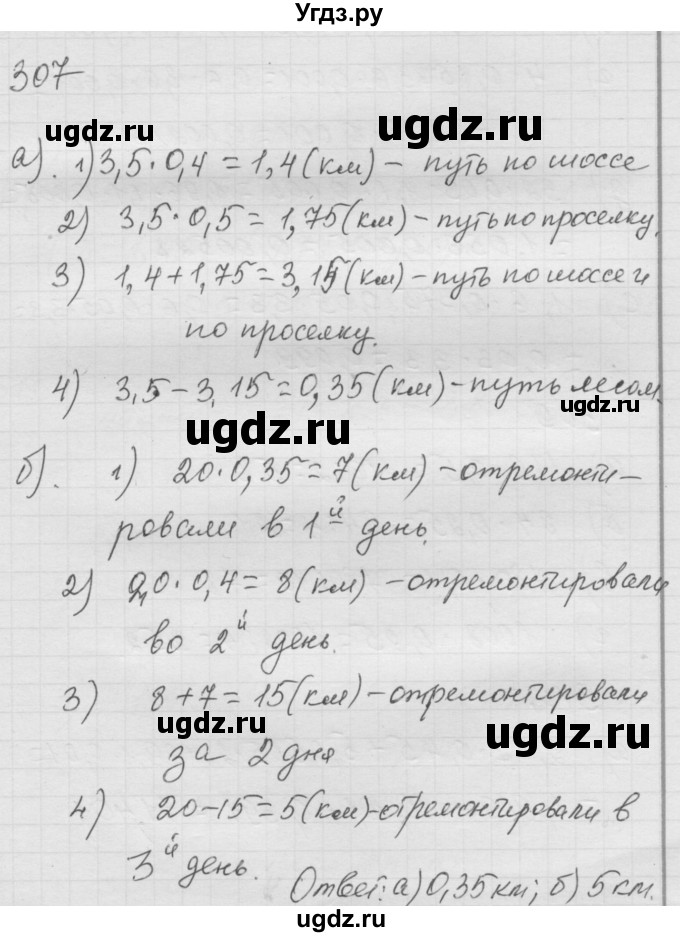 Угдз.ру
307
ugdz.ru ugdz.ru
а). 1) 3,5·0,4 = 1,4 (км) – путь по шоссе
2) 3,5·0,5 = 1,75 (км) – путь по проселку.
3) 1,4 + 1,75 = 3,15 (км) – путь по шоссе и
по проселку.
4) 3,5 – 3,15 = 0,35 (км) – путь лесом.
ugdz.ru ugdz.ru
б). 1) 20·0,35 = 7 (км) – отремонти-
ровали в 1й день.
2) 20·0,4 = 8 (км) – отремонтировали
во 2й день.
3) 8 + 7 = 15 (км) – отремонтировали
ugdz.ru ugdz.ru
за 2 дня
4) 20 – 15 = 5 (км) – отремонтировали в
3й день.
Ответ: а) 0,35 км; б) 5 км.
ugdz.ru